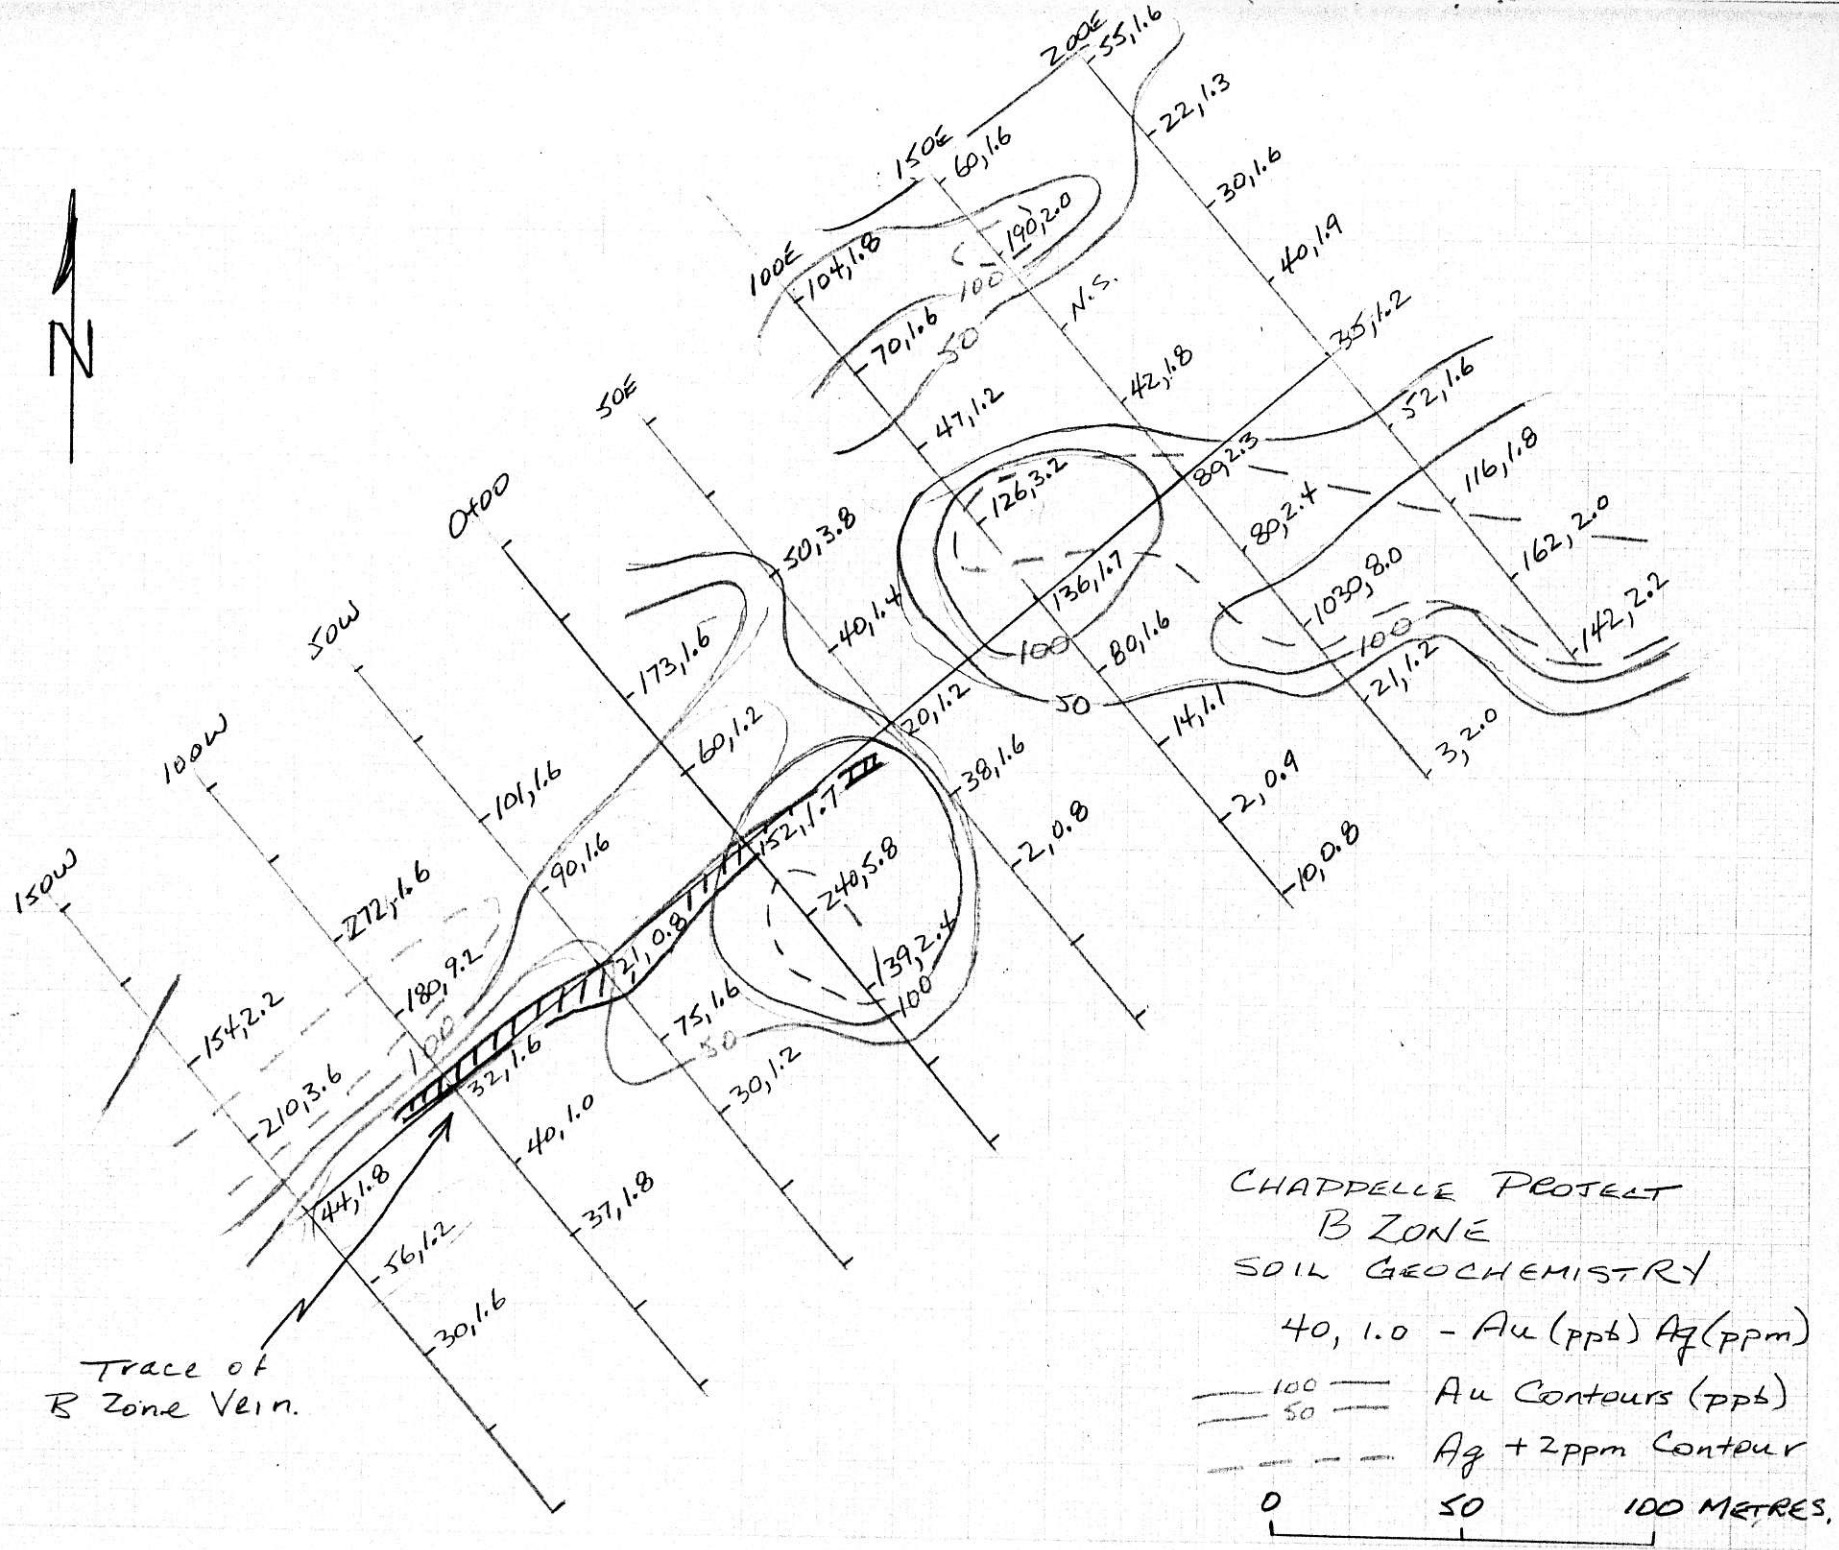 N
200E
55,1.6
22,1.3
30,1.6
40,1.9
35,1.2
52,1.6
116,1.8
162,2.0
142,2.2
150E
60,1.6
190,2.0
N.S.
42,1.8
89,2.3
80,2.4
1030,8.0
21,1.2
3,2.0
100E
104,1.8
70,1.6
47,1.2
126,3.2
136,1.7
80,1.6
14,1.1
2,0.9
10,0.8
50E
50,3.8
40,1.4
20,1.2
38,1.6
2,0.8
0+00
173,1.6
60,1.2
52,1.7
240,5.8
139,2.4
50W
101,1.6
90,1.6
21,0.8
75,1.6
30,1.2
100W
272,1.6
180,9.2
32,1.6
40,1.0
37,1.8
150W
154,2.2
210,3.6
44,1.8
56,1.2
30,1.6
100
50
100
50
100
100
50
100
Trace of
B Zone Vein.
CHAPPELLE PROJECT
B ZONE
SOIL GEOCHEMISTRY
40, 1.0 - Au (ppb) Ag (ppm)
100
50
Au Contours (ppb)
Ag +2ppm Contour
0 50 100 METRES.